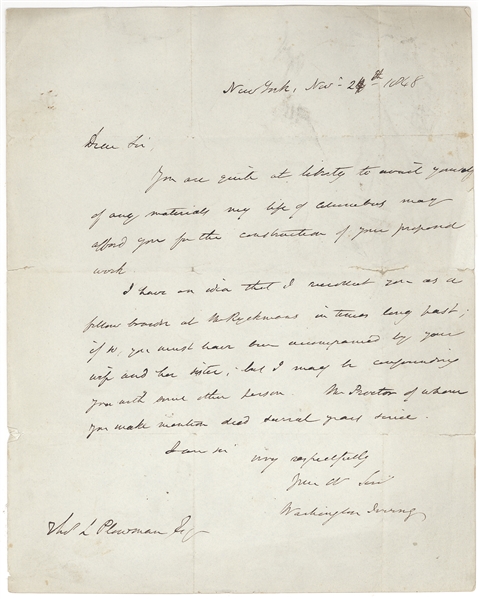 New York, Nov. 24th 1848
Dear Sir,
You are quite at liberty to avail yourself
of any materials my life of Columbus may
afford you for the construction of your proposed
work
I have an idea that I recollect you as a
fellow boarder at Mr Ryckmans in times long past;
if so, you must have been accompanied by your
wife and her sister; but I may be confounding
you with some other person. Mr Procter of whom
you make mention died several years since.
I am sir
very respectfully
Your Ob Servt
Washington Irving
Thos L Plowman Esq